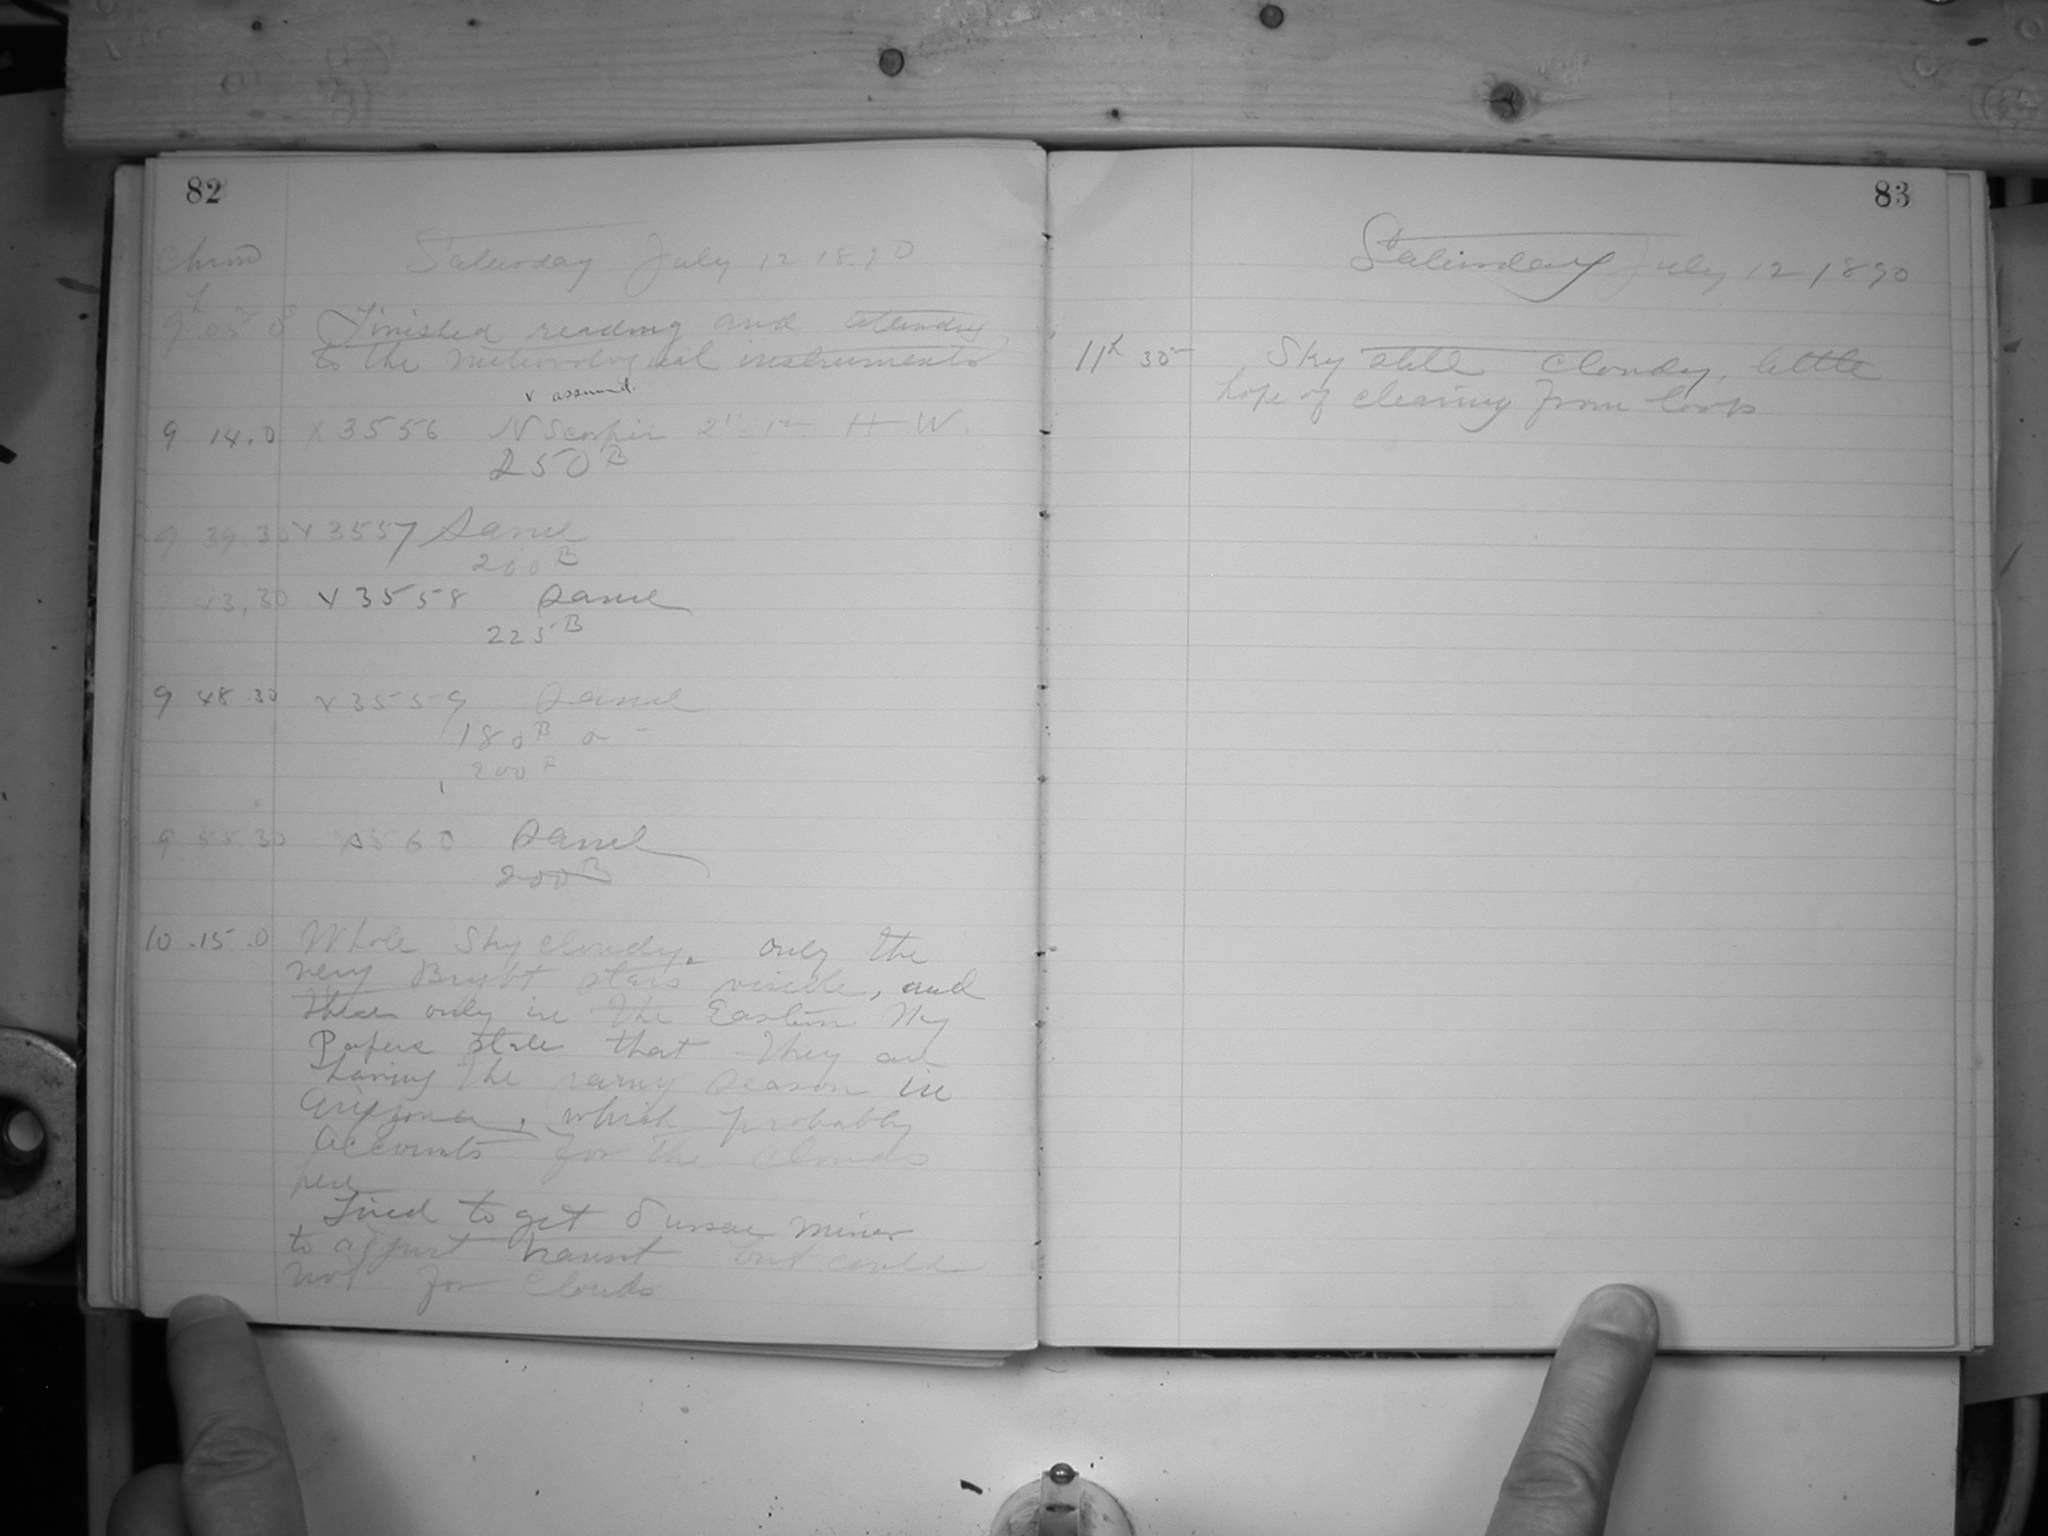 82
Chron Saturday July 12 1890
9h 05m 0s Finished reading and attending
to the meteorological instruments
v assumed.
9 14.0 X 3556 N Scorpii 2h=1m H W.
250 B
9 39.30 X 3557 Same
200 B
43.30 X 3558 Same
225 B
9 48.30 X 3559 Same
180 B
200 B
9 55.30 X 3560 Same
200 B
10 .15 .0 Whole sky cloudy. only the
very Bryht stars visible, and
these only in the Eastern sky
Papers state that they are
having the rainy season in
Arizona, which probably
accounts for the clouds
here
Tried to get δ ursae minor
to adjust but could
not for clouds
83
Saturday July 12 1890
11h 30m Sky still cloudy, little
hope of clearing from looks